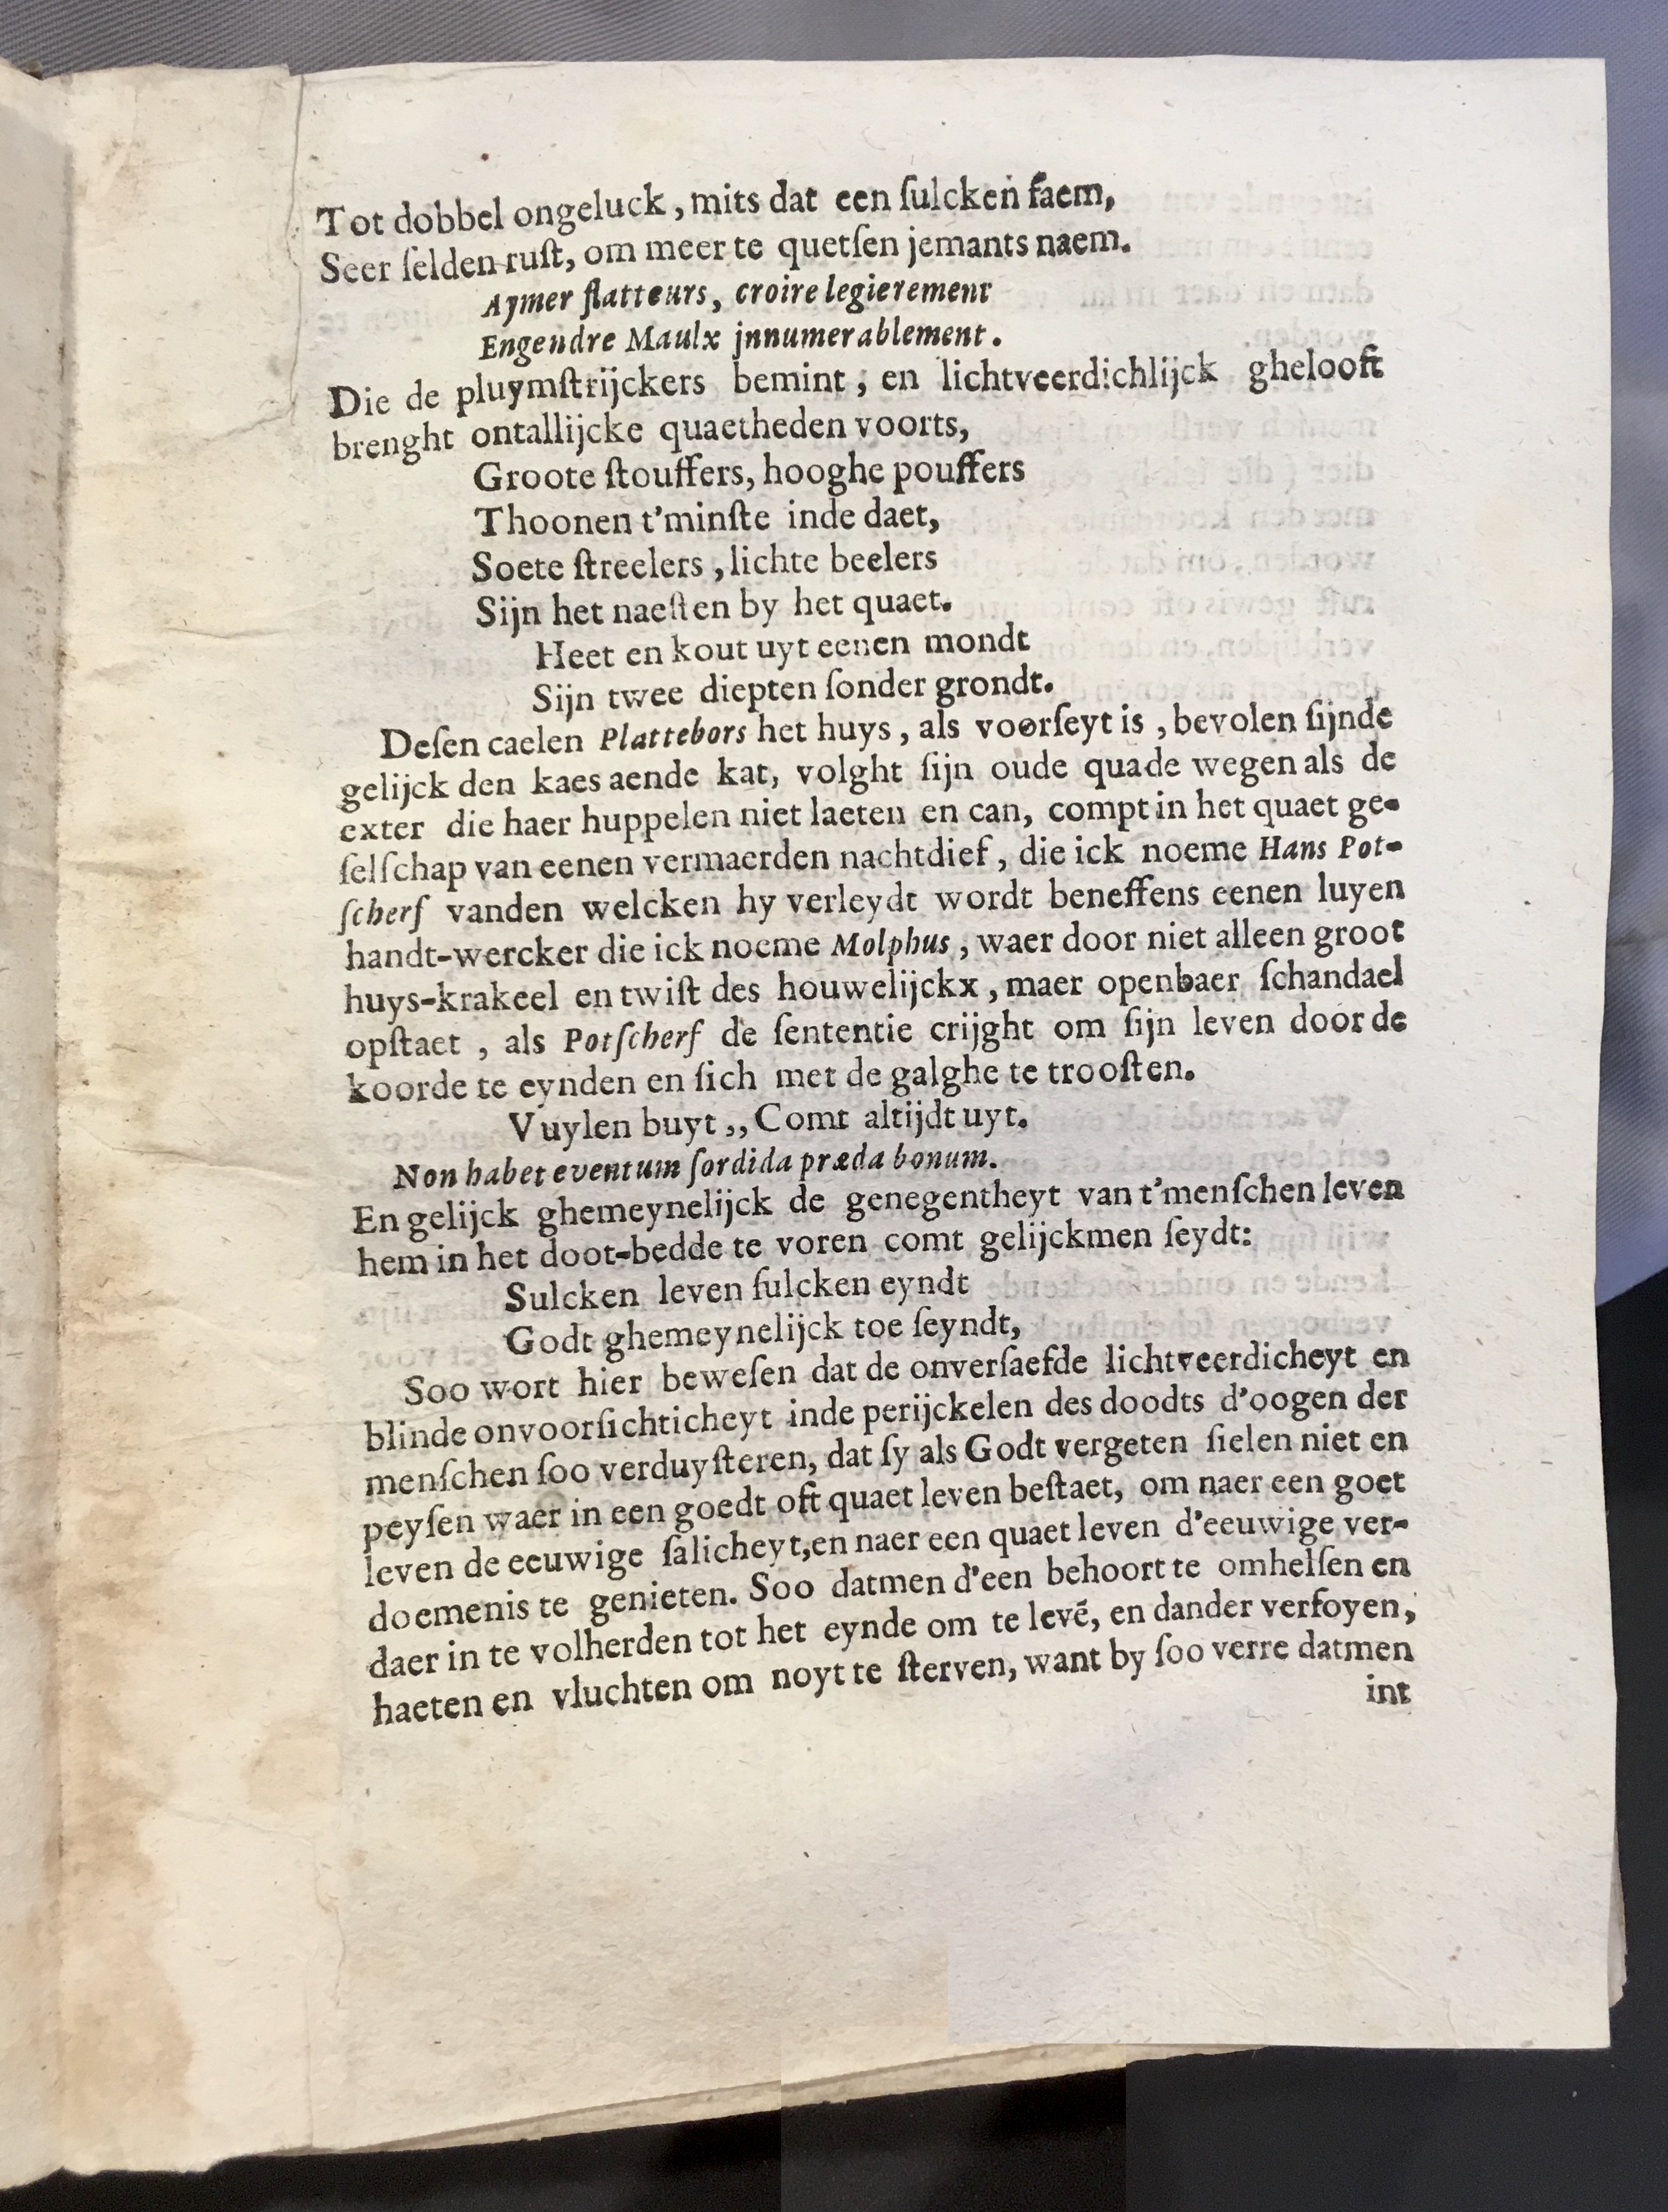 Tot dobbel ongeluck, mits dat een ſulcken faem,
Seer ſelden ruſt, om meer te quetſen jemants naem.
Aymer flatteurs, croire legierement
Engendre Maulx jnnumerablement.
Die de pluymſtrijckers bemint, en lichtveerdichlijck ghelooft
brenght ontallijcke quaetheden voorts,
Groote ſtouffers, hooghe pouffers
Thoonen t'minſte inde daet,
Soete ſtreelers, lichte beelers
Sijn het naeſten by het quaet.
Heet en kout uyt eenen mondt
Sijn twee diepten ſonder grondt.
Deſen caelen Plattebors het huys, als voorſeyt is, bevolen ſijnde
gelijck den kaes aende kat, volght ſijn oude quade wegen als de
exter die haer huppelen niet laeten en can, compt in het quaet ge-
ſelſchap van eenen vermaerden nachtdief, die ick noeme Hans Pot-
ſcherf vanden welcken hy verleydt wordt beneffens eenen luyen
handt-wercker die ick noeme Molphus, waer door niet alleen groot
huys-krakeel en twiſt des houwelijckx, maer openbaer ſchandael
opſtaet, als Potſcherf de ſententie crijght om ſijn leven door de
koorde te eynden en ſich met de galghe te trooſten.
Vuylen buyt,, Comt altijdt uyt.
Non habet eventum ſordida præda bonum.
En gelijck ghemeynelijck de genegentheyt van t'menſchen leven
hem in het doot-bedde te voren comt gelijckmen ſeydt:
Sulcken leven ſulcken eyndt
Godt ghemeynelijck toe ſeyndt,
Soo wort hier beweſen dat de onverſaefde lichtveerdicheyt en
blinde onvoorſichticheyt inde perijckelen des doodts d'oogen der
menſchen ſoo verduyſteren, dat ſy als Godt vergeten ſielen niet en
peyſen waer in een goedt oft quaet leven beſtaet, om naer een goet
leven de eeuwige ſalicheyt, en naer een quaet leven d'eeuwige ver-
doemenis te genieten. Soo datmen d'een behoort te omhelſen en
daer in te volherden tot het eynde om te levē, en dander verfoyen,
haeten en vluchten om noyt te ſterven, want by ſoo verre datmen
int